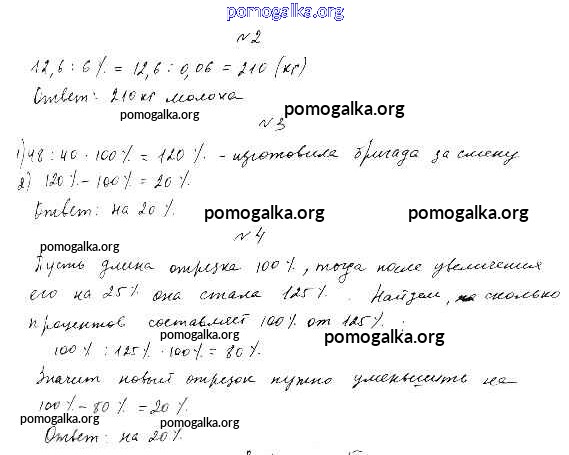 pomogalka.org
№2
12,6 : 6% = 12,6 : 0,06 = 210 (кг)
Ответ: 210 кг молока
pomogalka.org
pomogalka.org
№3
1) 48 : 40 · 100% = 120% - изготовила бригада за смену
2) 120% - 100% = 20%.
Ответ: на 20%.
pomogalka.org
pomogalka.org
№4
pomogalka.org
Пусть длина отрезка 100%, тогда после увеличения
его на 25% она стала 125%. Найдем, на сколько
процентов составляет 100% от 125%:
pomogalka.org
pomogalka.org
100% : 125% · 100% = 80%.
Значит новый отрезок нужно уменьшить на
100% - 80% = 20%.
pomogalka.org
pomogalka.org
Ответ: на 20%.